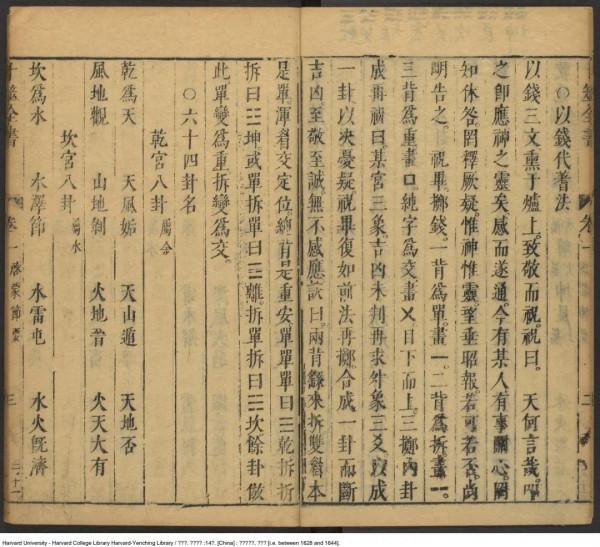 ○以錢代蓍法
以錢三文熏于爐上致敬而祝祝曰 天何言哉叩
之即應神之靈矣感而遂通今有某人有事關心罔
知休咎罔釋厥疑惟神惟靈望垂昭報若可若否尚
明告之 祝畢擲錢一背爲單畫一二背爲拆畫⚋
三背爲重畫口純字爲交畫乂自下而上三擲內卦
成再祝曰某宮三象吉凶未判再求外象三爻以成
一卦以決憂疑祝畢復如前法再擲合成一卦而斷
吉凶至敬至誠無不感應訣曰兩背繇來拆雙眉本
是單渾眉交定位總背是重安單單單曰☰乾拆拆
拆曰☷坤或單拆單曰☲離拆單拆曰☵坎餘卦倣
此單變爲重拆變爲交
○六十四卦名
乾宮八卦 屬金
乾爲天 天風姤 天山遁 天地否
風地觀 山地剝 火地晉 火天大有
坎宮八卦 屬水
坎爲水 水澤節 水雷屯 水火既濟
卜筮全書 卷一 啟蒙節要 三
Harvard University - Harvard College Library Harvard-Yenching Library / ???. ???? :14?. [China] : ?????. ??? [i.e. between 1628 and 1644].